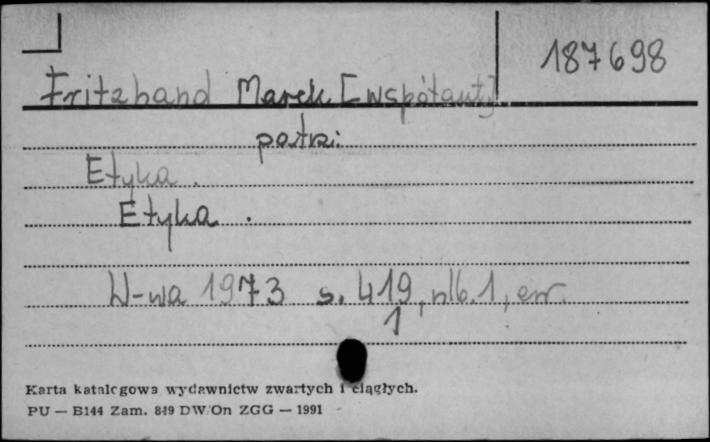 187698
Fritzhand Marek [współaut.]
patrz:
Etyka.
Etyka.
W-wa 1973 s. 419, nlb. 1, err.
1
Karta katalogowa wydawnictw zwartych i ciągłych.
PU — B144 Zam. 849 DW/On ZGG — 1991